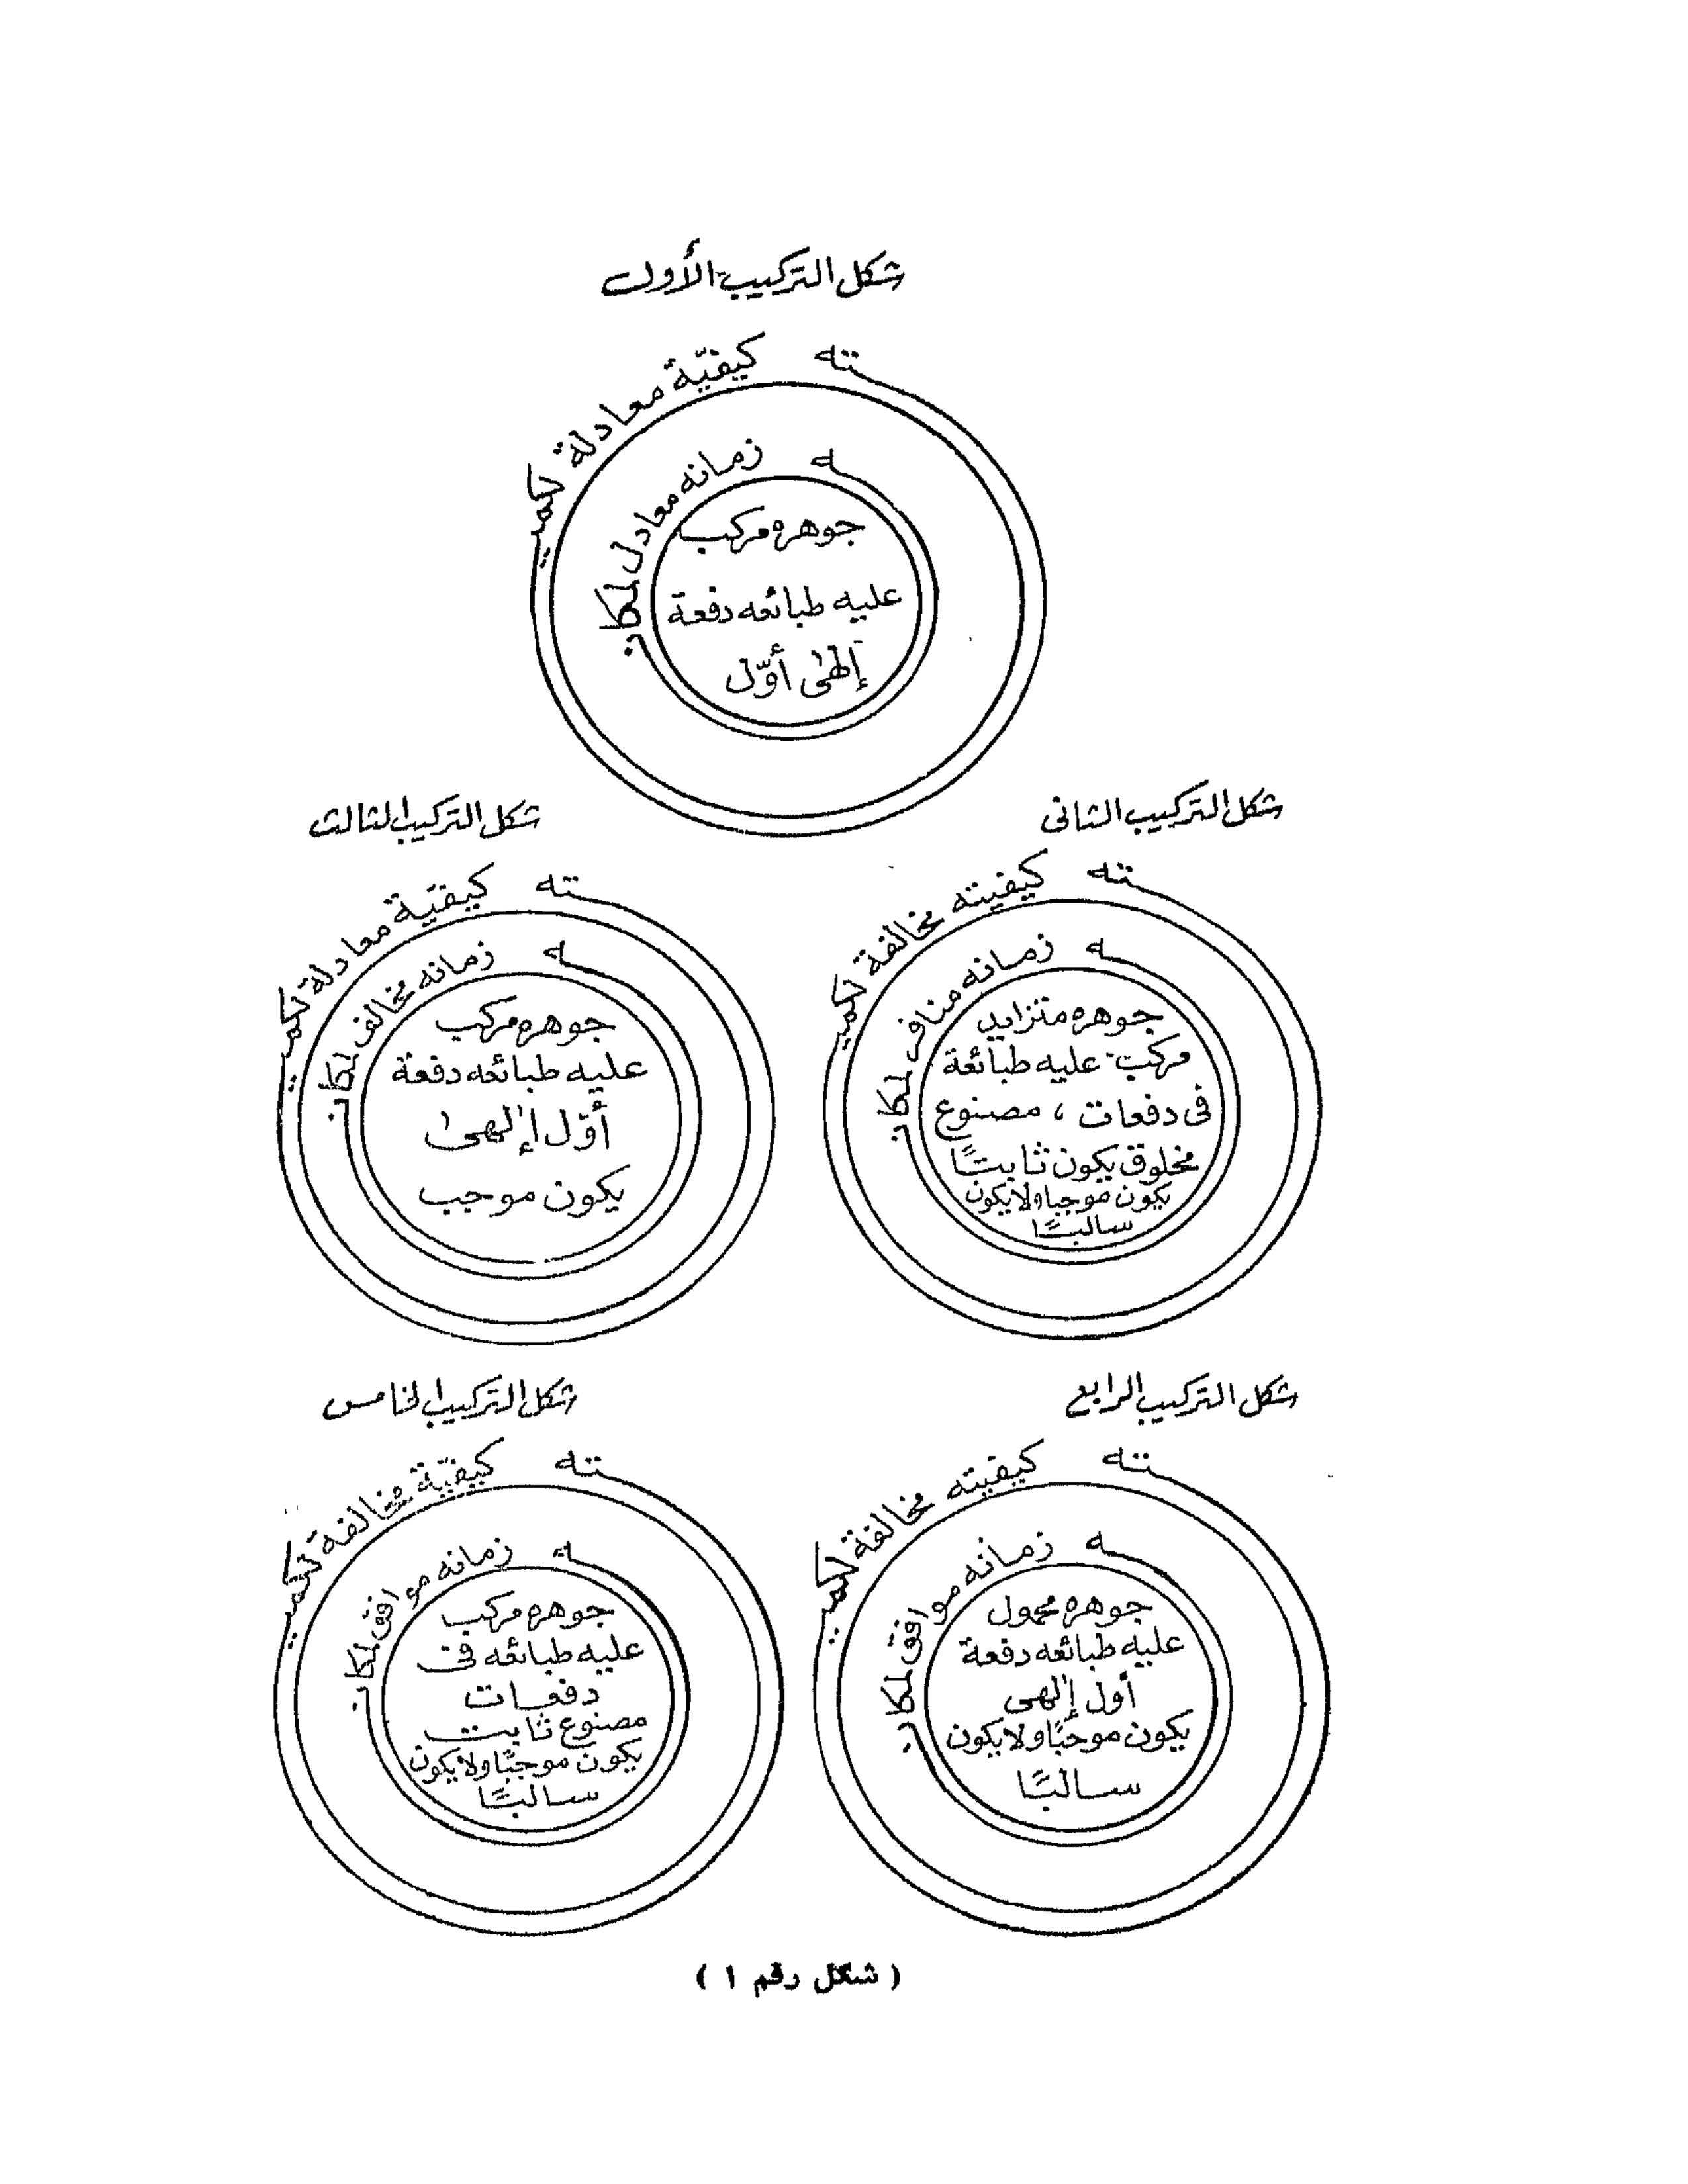 شكل التركيب الأول
كيفيّة معادلة لكميته
زمانه معادل لمكانه
جوهره مركب
عليه طبائعه دفعة
إلهى أوّل
شكل التركيب الثانى
كيفيته مخالفة لكميته
زمانه منافر لمكانه
جوهره متزايد
مركب عليه طبائعة
فى دفعات ، مصنوع
مخلوق يكون ثابتًا
يكون موجبا ولا يكون
سالبًا
شكل التركيب الثالث
كيفيّة معادلة لكميته
زمانه مخالف لمكانه
جوهره مركب
عليه طبائعه دفعة
أوّل إلهى
يكون موجب
شكل التركيب الرابع
كيفيته مخالفة لكميته
زمانه موافق لمكانه
جوهره محمول
عليه طبائعه دفعة
أول إلهى
يكون موجبًا ولا يكون
سالبًا
شكل التركيب الخامس
كيفيّة مخالفة لكميته
زمانه موافق لمكانه
جوهره مركب
عليه طبائعه فى
دفعات
مصنوع ثابت
يكون موجبًا ولا يكون
سالبًا
( شكل رقم ١ )